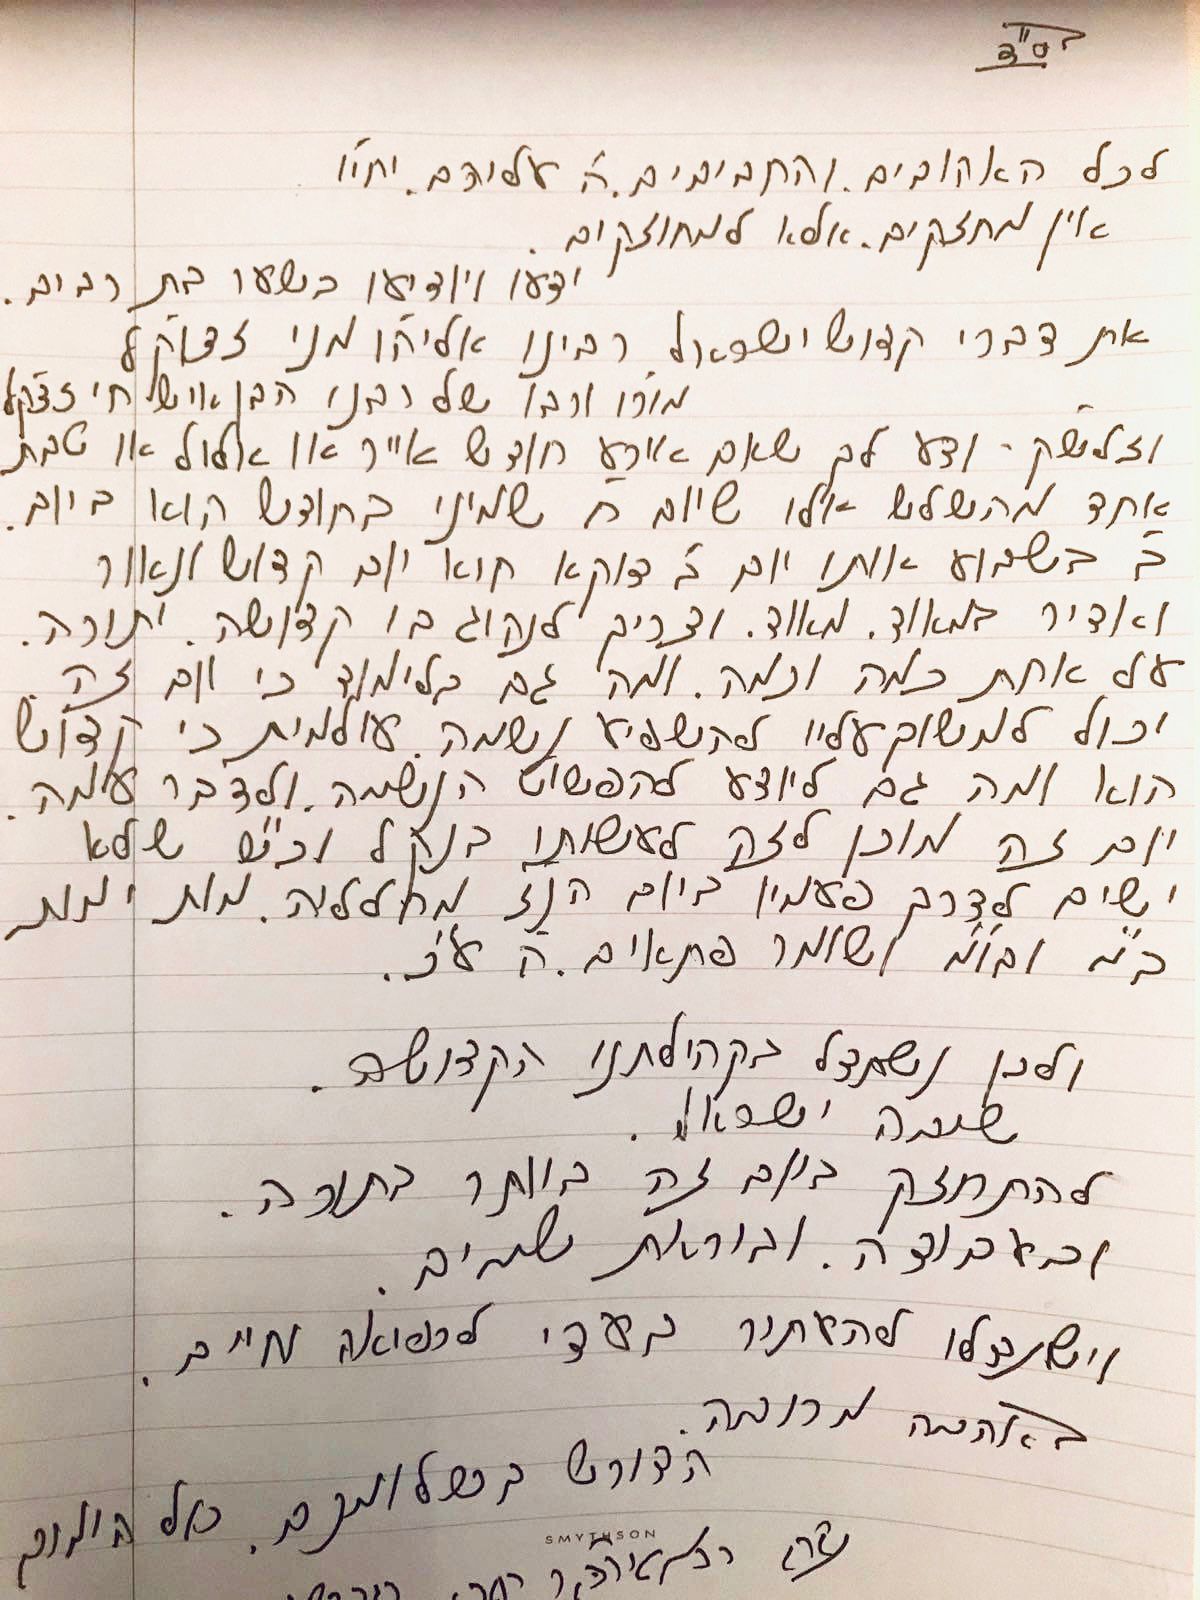 בס"ד
לכל האהובים. והחביבים. ה' עליהם. יחיו
אין מחזקים. אלא למחוזקים.
ידעו ויודיעו בשער בת רבים.
את דברי קדוש ישראל רבינו אליהו מני זצוק"ל
מורו ורבו של רבנו הבן איש חי זצוק"ל
וזלש"ק - ודע לך שאם אירע חודש אייר או אלול או טבת
אחד מהשלש אלו שיום ח' שמיני בחודש הוא ביום.
ב' בשבוע אותו יום ב' דוקא הוא יום קדוש ונאור
ואדיר במאוד. מאוד. וצריך לנהוג בו קדושה. יתירה.
על אחת כמה וכמה. ומה גם בלימוד כי יום זה.
יכול למשוך עליו להשפיע נשמה. עולמית כי קדוש
הוא ומה גם ליודע להפשיט הנשמה. ולדבר עימה.
יום זה מוכן לזה לעשותו בנקל וכ"ש שלא
ישים לדרך פעמיו ביום הנז' מחלליה. מות ימות
ב"מ וב"מ ושומר פתאים. ה' ע"כ.
ולכן נשתדל בקהילתנו הקדושה.
שובה ישראל.
להתחזק ביום זה ביותר בתורה.
ובעבודה. וביראת שמים.
וישתדלו להעתיר בעדי לרפואה חיים.
באהבה מרובה.
הדורש בשלומכם. כאל הימים
SMYTHSON